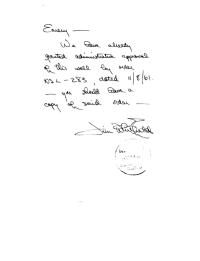 Emery —
We have already
granted administrative approval
of this well by order
NSL - 283, dated 11/8/61.
— you should have a
copy of said order —
Jim